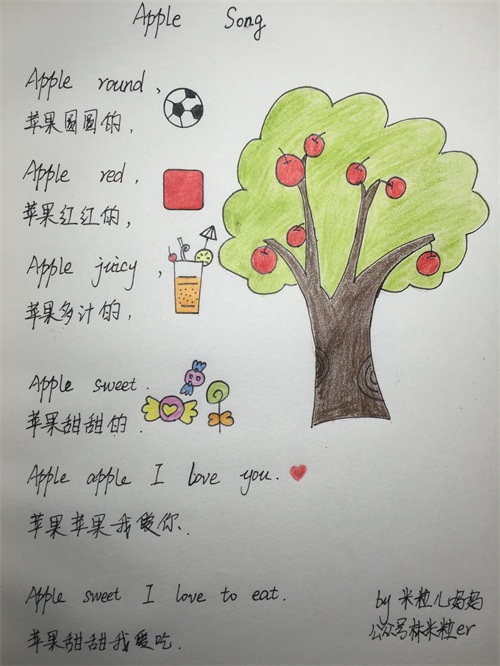 Apple Song
Apple round,
苹果圆圆的,
Apple red,
苹果红红的,
Apple juicy,
苹果多汁的,
Apple sweet.
苹果甜甜的.
Apple apple I love you.
苹果苹果我爱你.
Apple sweet I love to eat.
苹果甜甜我爱吃.
by 米粒儿妈妈
公众号林米粒er